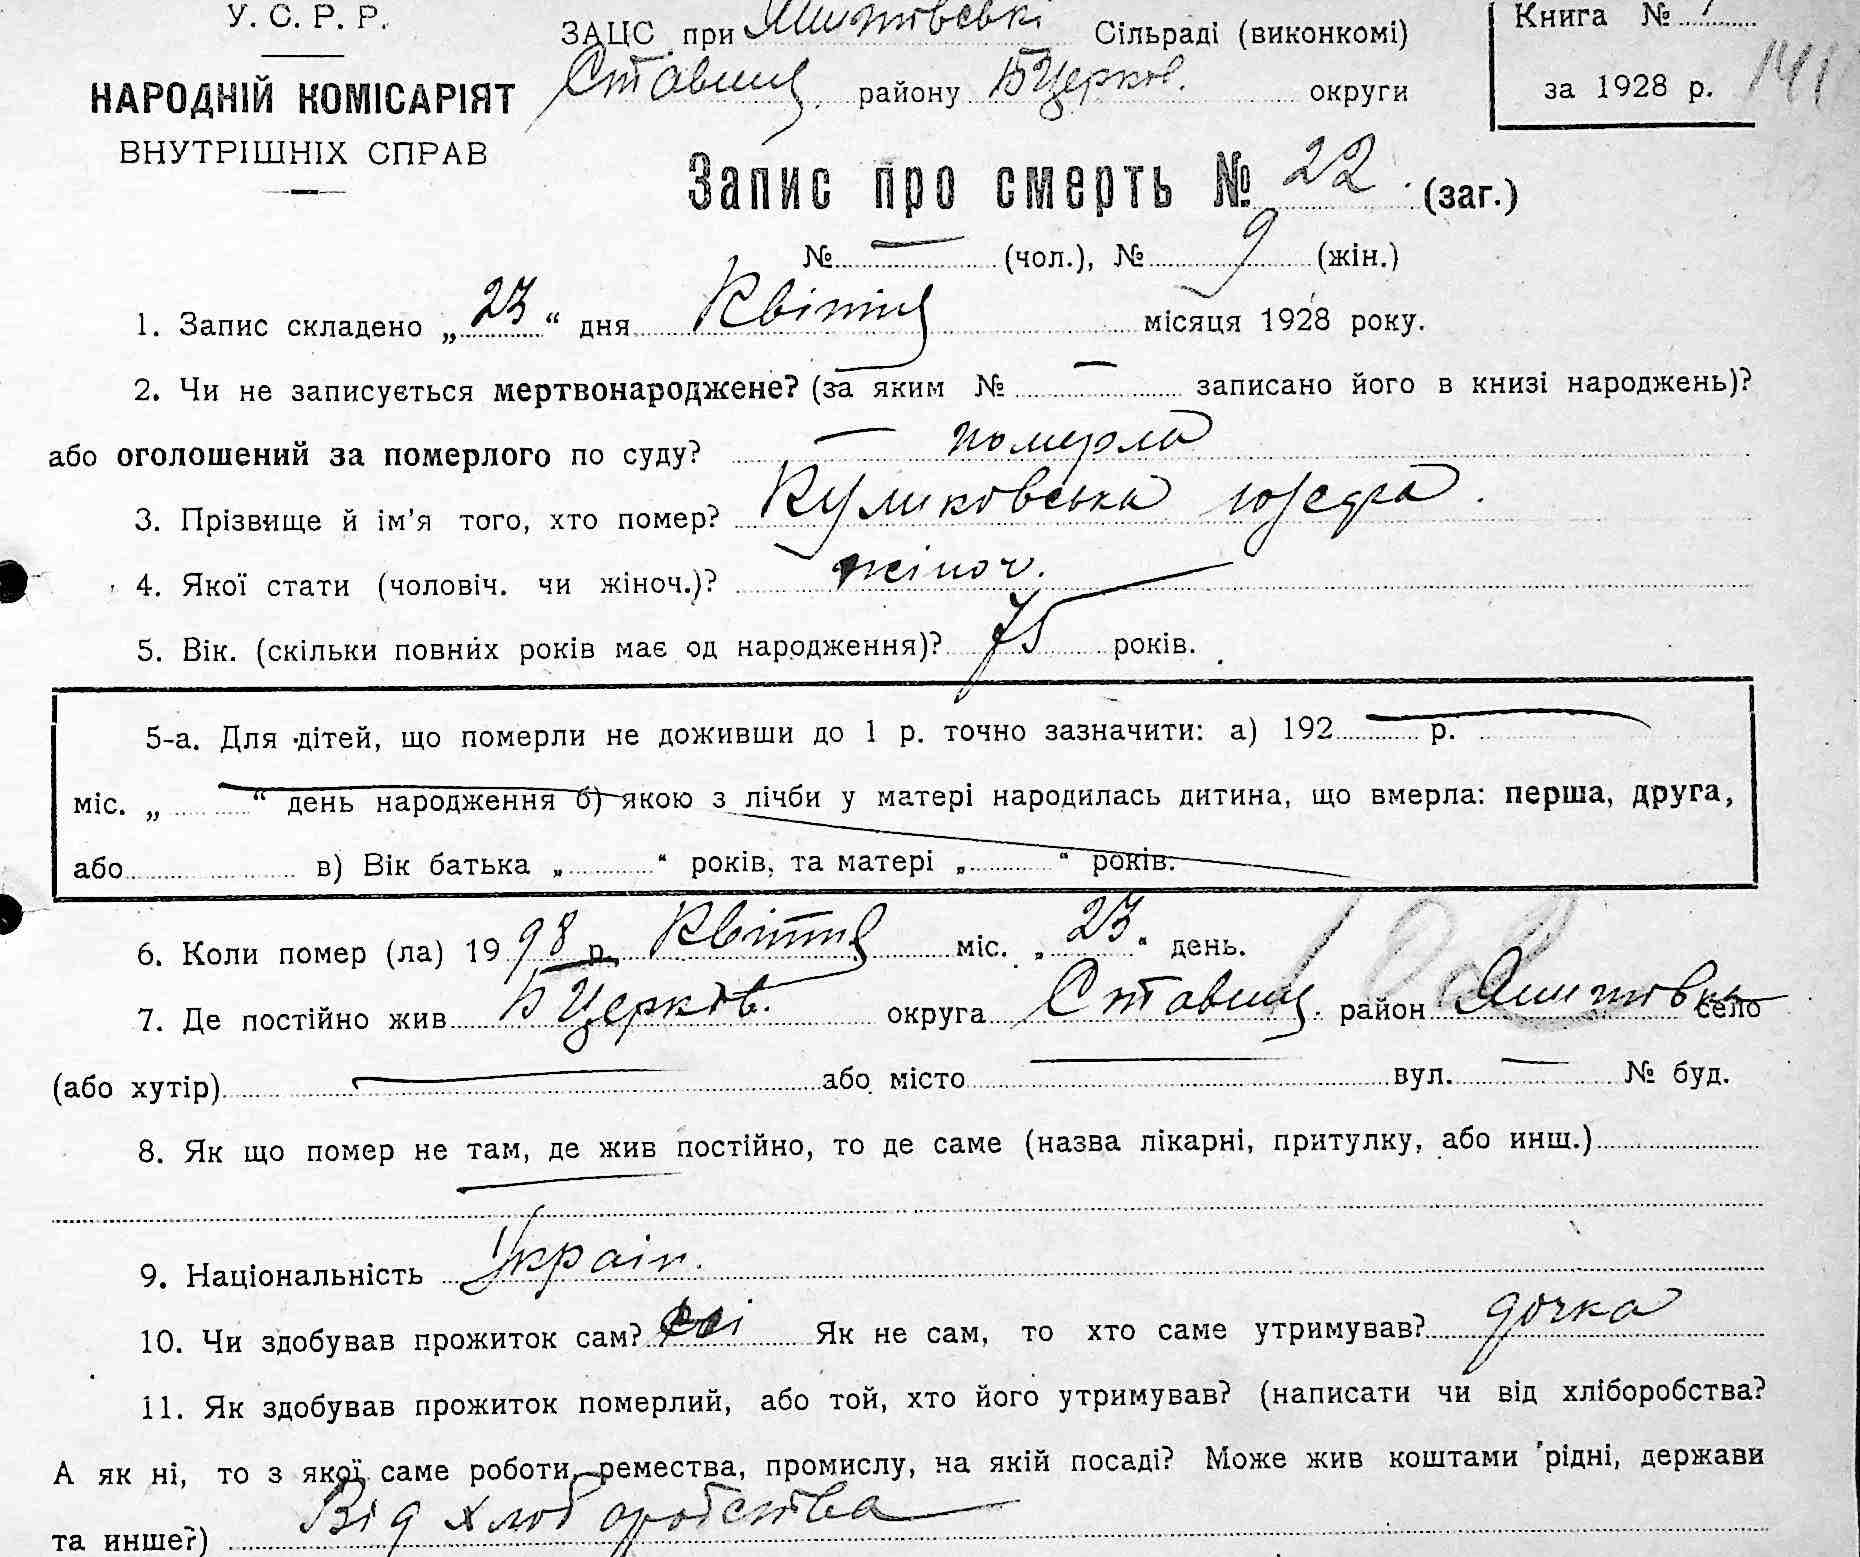 У. С. Р. Р.
НАРОДНІЙ КОМІСАРІЯТ
ВНУТРІШНІХ СПРАВ
ЗАЦС при Сільраді (виконкомі)
Ставищ. району Б Церков. округи
Книга №
за 1928 р. 141
Запис про смерть № 22. (заг.)
№ — (чол.), № 9 (жін.)
1. Запис складено „23“ дня Квітня місяця 1928 року.
2. Чи не записується мертвонароджене? (за яким № — записано його в книзі народжень)?
або оголошений за померлого по суду? — померла
3. Прізвище й ім'я того, хто помер? Куликовська
4. Якої стати (чоловіч. чи жіноч.)? жіноч.
5. Вік. (скільки повних років має од народження)? 75 років.
5-а. Для дітей, що померли не доживши до 1 р. точно зазначити: а) 192 р.
міс. „ “ день народження б) якою з лічби у матері народилась дитина, що вмерла: перша, друга,
або в) Вік батька „ “ років, та матері „ “ років.
6. Коли помер (ла) 19 98 р. Квітня міс. „23“ день.
7. Де постійно жив Б Церків. округа Ставищ. район село
(або хутір) — або місто — вул. — № буд.
8. Як що помер не там, де жив постійно, то де саме (назва лікарні, притулку, або инш.)
—
9. Національність Україн.
10. Чи здобував прожиток сам? Як не сам, то хто саме утримував? дочка
11. Як здобував прожиток померлий, або той, хто його утримував? (написати чи від хліборобства?
А як ні, то з якої саме роботи, ремества, промислу, на якій посаді? Може жив коштами рідні, держави
та инше?) Від хліборобства